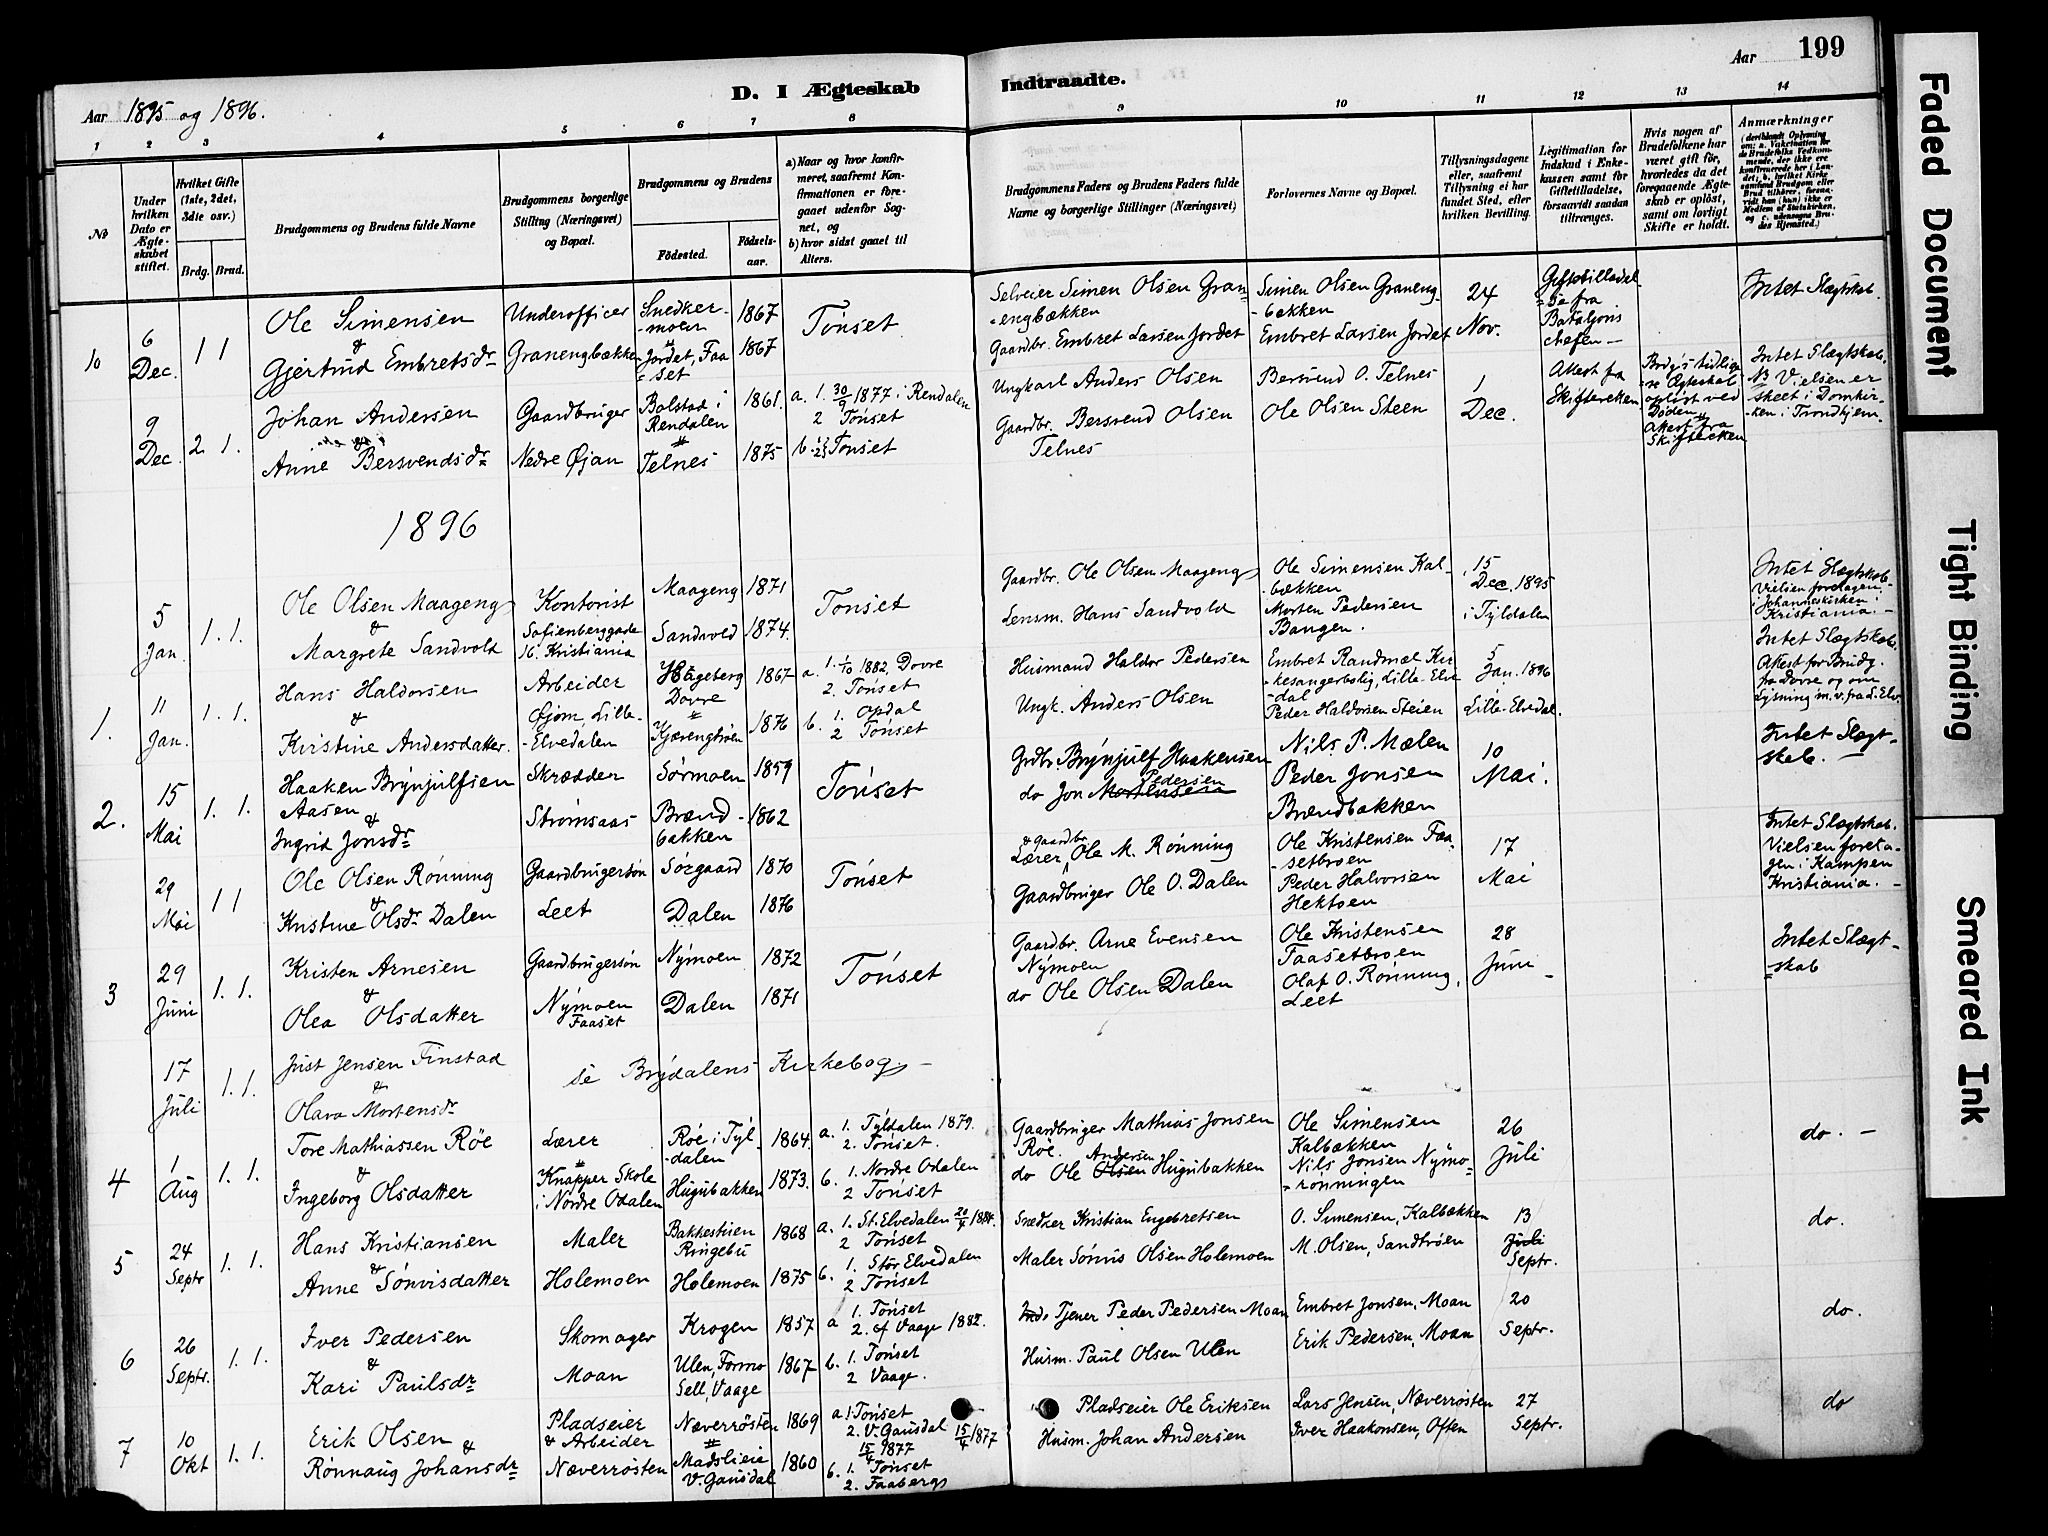 Aar 1895 og 1896.
D. I Ægteskab Indtraadte.
Aar 199
1 2 3 4 5 6 7 8 9 10 11 12 13 14
No
Under hvilken Dato er Ægteskabet stiftet.
Hvilket Gifte (1ste, 2det, 3die osv.)
Brdg. Brud.
Brudgommens og Brudens fulde Navne
Brudgommens borgerlige Stilling (Næringsvei) og Bopæl.
Brudgommens og Brudens
Fødested.
Fødselsaar.
a) Naar og hvor konfirmeret, saafremt Konfirmationen er foregaaet udenfor Sognet, og
b) hvor sidst gaaet til Alters.
Brudgommens Faders og Brudens Faders fulde Navne og borgerlige Stillinger (Næringsvei)
Forlovernes Navne og Bopæl.
Tillysningsdagene eller, saafremt Tillysning ei har fundet Sted, efter hvilken Bevilling.
Legitimation for Indskud i Enkekassen samt for Giftetilladelse, forsaavidt saadan tiltrænges.
Hvis nogen af Brudefolkene har været gift før, hvorledes da det foregaaende Ægteskab er opløst, samt om lovligt Skifte er holdt.
Anmærkninger
(deriblandt Oplysning om: a. Vakcination for de Brudefolks Vedkommende, der ikke ere konfirmerede her i Landet; b. hvilket Kirkesamfund Brudgom eller Brud tilhører, forsaavidt han (hun) ikke er Medlem af Statskirken, og c. udensogns Brudes Hjemsted.)
10
6 Dec.
1 1
Ole Simensen
&
Gjertrud Embretsdr
Underofficer
Granengbækken
Snedkermoen
Jordet, Faaset
1867
1867
Tønset
Selveier Simen Olsen Granengbækken
Gaardbr. Embret Larsen Jordet
Simen Olsen Granengbækken
Embret Larsen Jordet
24 Nov.
Giftetilladelse fra Bataljonschefen
Intet Slægtskab.
9 Dec.
2 1.
Johan Andersen
&
Anne Bersvendsdr
Gaardbruger
Nedre Øjan
Bolstad i Rendalen
Telnes
1861.
1875
a. 1. 30/9 1877 i Rendalen
2 Tønset
b. 1/2 Tønset
Ungkarl Anders Olsen
Gaardbr. Bersvend Olsen Telnes
Bersvend O. Telnes
Ole Olsen Steen
1 Dec.
Attest fra Skifteretten
Brdg's tidligere Ægteskab opløst ved Døden. Attest fra Skifteretten
Intet Slægtskab.
NB Vielsen er skeet i Domkirken i Trondhjem.
1896
5 Jan.
1. 1.
Ole Olsen Maageng
&
Margrete Sandvold
Kontorist
Sofienberggade 16. Kristiania
Maageng
Sandvold
1871
1874.
Tønset
Gaardbr. Ole Olsen Maageng
Lensm. Hans Sandvold
Ole Simensen Kalbækken
Morten Pedersen Bangen.
15 Dec. 1895 i Tyldalen
Intet Slægtskab.
Vielsen foretagen i Johanneskirken Kristiania.
1.
11 Jan.
1. 1.
Hans Haldorsen
&
Kristine Andersdatter.
Arbeider
Øjom, Lille-Elvedalen
Hageberg Dovre
Kjærengbroen
1867
1876
a. 1. 1/10 1882, Dovre
2. Tønset
b. 1. Opdal
2 Tønset
Husmand Haldor Pedersen
Ungk. Anders Olsen
Embret Randmæl Kirkesangerbolig, Lille-Elvdal
Peder Haldorsen Steien
5 Jan. 1896
Lille-Elvedal.
Intet Slægtskab.
Attest for Brudg. fra Dovre og om Lysning m. v. fra L. Elv.
2.
15 Mai
1. 1.
Haaken Brynjulfsen Aasen
&
Ingrid Jonsdr
Skrædder
Strømsaas
Sørmoen
Brændbakken
1859
1862
Tønset
Grdbr. Brynjulf Haakensen
do Jon Mortensen Pedersen
Nils P. Mælen
Peder Jonsen Brændbakken
10 Mai.
Intet Slægtskab.
29 Mai
1 1
Ole Olsen Rønning
&
Kristine Olsdr Dalen
Gaardbrugersøn
Leet
Sørgaard
Dalen
1870
1876
Tønset
Lærer & Gaardbr. Ole M. Rønning
Gaardbruger Ole O. Dalen
Ole Kristensen Faasetbroen
Peder Halvorsen Hektoen
17 Mai
Intet Slægtskab.
Vielsen foretagen i Kampen Kristiania.
3
29 Juni
1. 1.
Kristen Arnesen
&
Olea Olsdatter
Gaardbrugersøn
Nymoen Faaset
Nymoen
Dalen
1872
1871
Tønset
Gaardbr. Arne Evensen Nymoen
do Ole Olsen Dalen
Ole Kristensen Faasetbroen
Olaf O. Rønning, Leet
28 Juni
Intet Slægtskab
17 Juli
1. 1.
Just Jensen Finstad
&
Olava Mortensdr
se Brydalens Kirkebog
4
1 Aug
1. 1.
Tore Mathiassen Røe
&
Ingeborg Olsdatter
Lærer
Knapper Skole i Nordre Odalen
Røe i Tyldalen
Hugubakken
1864.
1873.
a. 1. Tyldalen 1879.
2. Tønset.
b. 1. Nordre Odalen
2 Tønset
Gaardbruger Mathias Jonsen Røe.
do Ole Olsen Andersen Hugubakken
Ole Simensen Kalbækken
Nils Jonsen Nymorønningen
26 Juli
do.
5
24 Septr
1. 1.
Hans Kristiansen
&
Anne Sønvisdatter
Maler
Holemoen
Bakkestuen Ringebu
Holemoen
1868
1875
a. 1. St. Elvedalen 20/4 1884.
2 Tønset
b. 1. Stor Elvedalen
2 Tønset
Snedker Kristian Engebretsen
Maler Sønvis Olsen Holemoen
O. Simensen, Kalbækken
M. Olsen, Sandbroen
13 Juli Septr.
do.
6
26 Septr.
1. 1.
Iver Pedersen
&
Kari Paulsdr
Skomager
Moan
Krogen
Ulen, Formo Sell, Vaage
1857
1867
a 1. Tønset
2. cf Vaage 1882.
b. 1. Tønset
2 Vaage.
Tjener Peder Pedersen Moan
Husm. Paul Olsen Ulen
Embret Jonsen, Moan
Erik Pedersen, Moan
20 Septr.
do.
7
10 Okt
1. 1.
Erik Olsen
&
Rønnaug Johansdr
Pladseier & Arbeider
Næverrøsten
Næverrøsten
Madslieie V. Gausdal
1869
1860
a 1. Tønset
2. V. Gausdal 15/4 1877
15/4 1877
b. 1. Tønset
2. Faaberg
Pladseier Ole Eriksen
Husm. Johan Andersen
Lars Jensen, Næverrøsten
Iver Haakonsen, Often
27 Septr.
do
Faded Document
Tight Binding
Smeared Ink